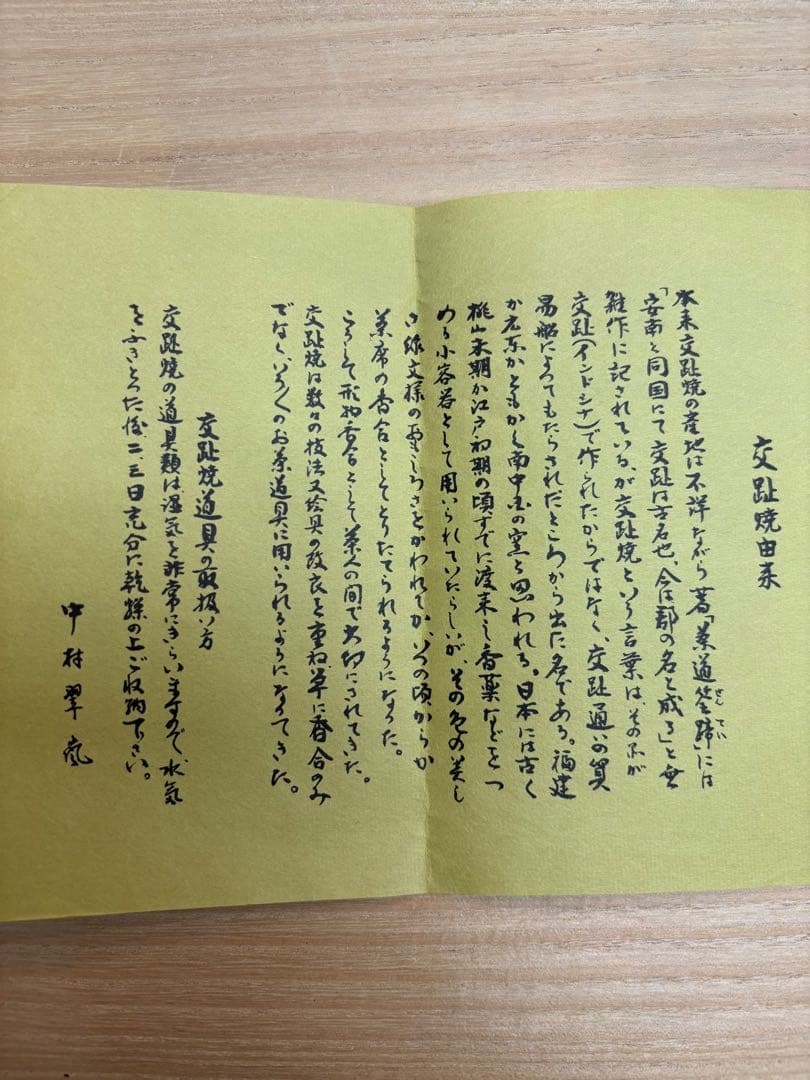 交趾焼由来
本来交趾焼の産地は不詳ながら著「茶道筌蹄」には
せんてい
「安南と同国にて交趾は古名也、今は郡の名と成る」と無
雑作に記されている、が交趾焼という言葉は、その品が
交趾(インドシナ)で作られたからではなく、交趾通いの貿
易船によってもたらされたところから出た名である。福建
か広東かともかく南中国の窯と思われる。日本には古く
桃山末期か江戸初期の頃すでに渡来し香薬などをつ
める小容器として用いられていたらしいが、その色の美し
さ、線文様の面しろさをかわれてか、いつの頃からか
茶席の香合としてとりたてられるようになった。
こうして形物香合として茶人の間で大切にされてきた。
交趾焼は数々の技法又絵具の改良を重ね、単に香合のみ
でなく、いろ〱のお茶道具に用いられるようになってきた。
交趾焼道具の取扱い方
交趾焼の道具類は、湿気を非常にきらいますので、水気
をふきとった後、二、三日充分に乾燥の上ご収納下さい。
中村翠嵐